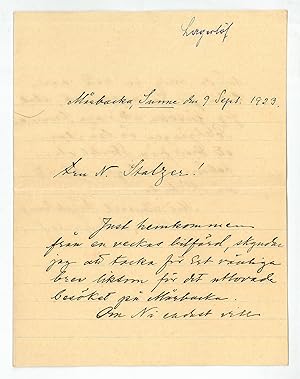 Lagerlöf
Mårbacka, Sunne den 9 Sept. 1923.
Fru N. Stalzer!
Just hemkommen
från en veckas bilfärd, skyndar
jag att tacka för Ert vänliga
brev liksom för det utlovade
besöket på Mårbacka.
Om Ni endast vete